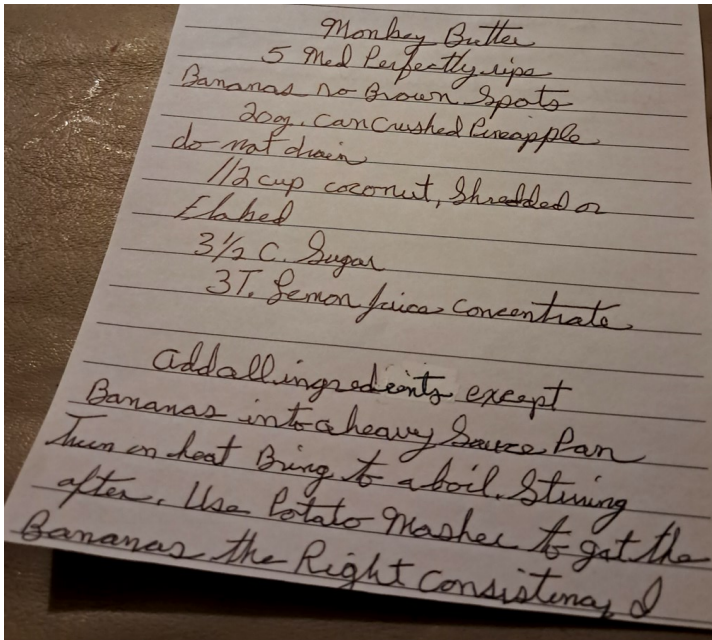 Monkey Butter
5 Med Perfectly ripe
Bananas no Brown Spots
20g. can Crushed Pineapple
do not drain
1/2 cup coconut, Shredded or
Flaked
3 1/2 C. Sugar
3T. Lemon juice concentrate
add all ingredients except
Bananas into a heavy Sauce Pan
Turn on heat Bring to a boil. Stirring
often. Use Potato Masher to get the
Bananas the Right Consistency I